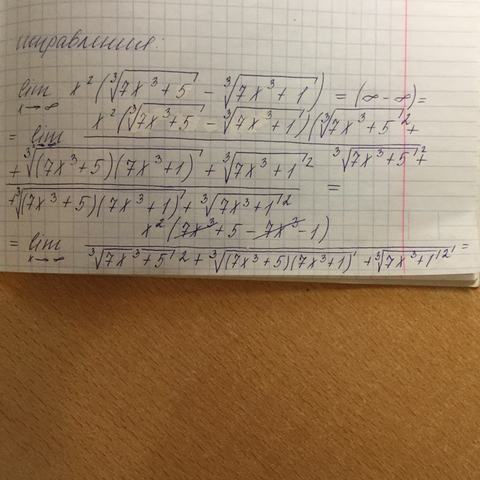 исправления:
lim x→∞ x² (∛(7x³+5) - ∛(7x³+1)) = (∞-∞) =
= lim x²(∛(7x³+5) - ∛(7x³+1))(∛(7x³+5)² +
∛(7x³+5)² +
+ ∛((7x³+5)(7x³+1)) + ∛(7x³+1)²
+ ∛((7x³+5)(7x³+1)) + ∛(7x³+1)² =
= lim x→∞ x²(7x³+5-7x³-1)
∛(7x³+5)² + ∛((7x³+5)(7x³+1)) + ∛(7x³+1)² =